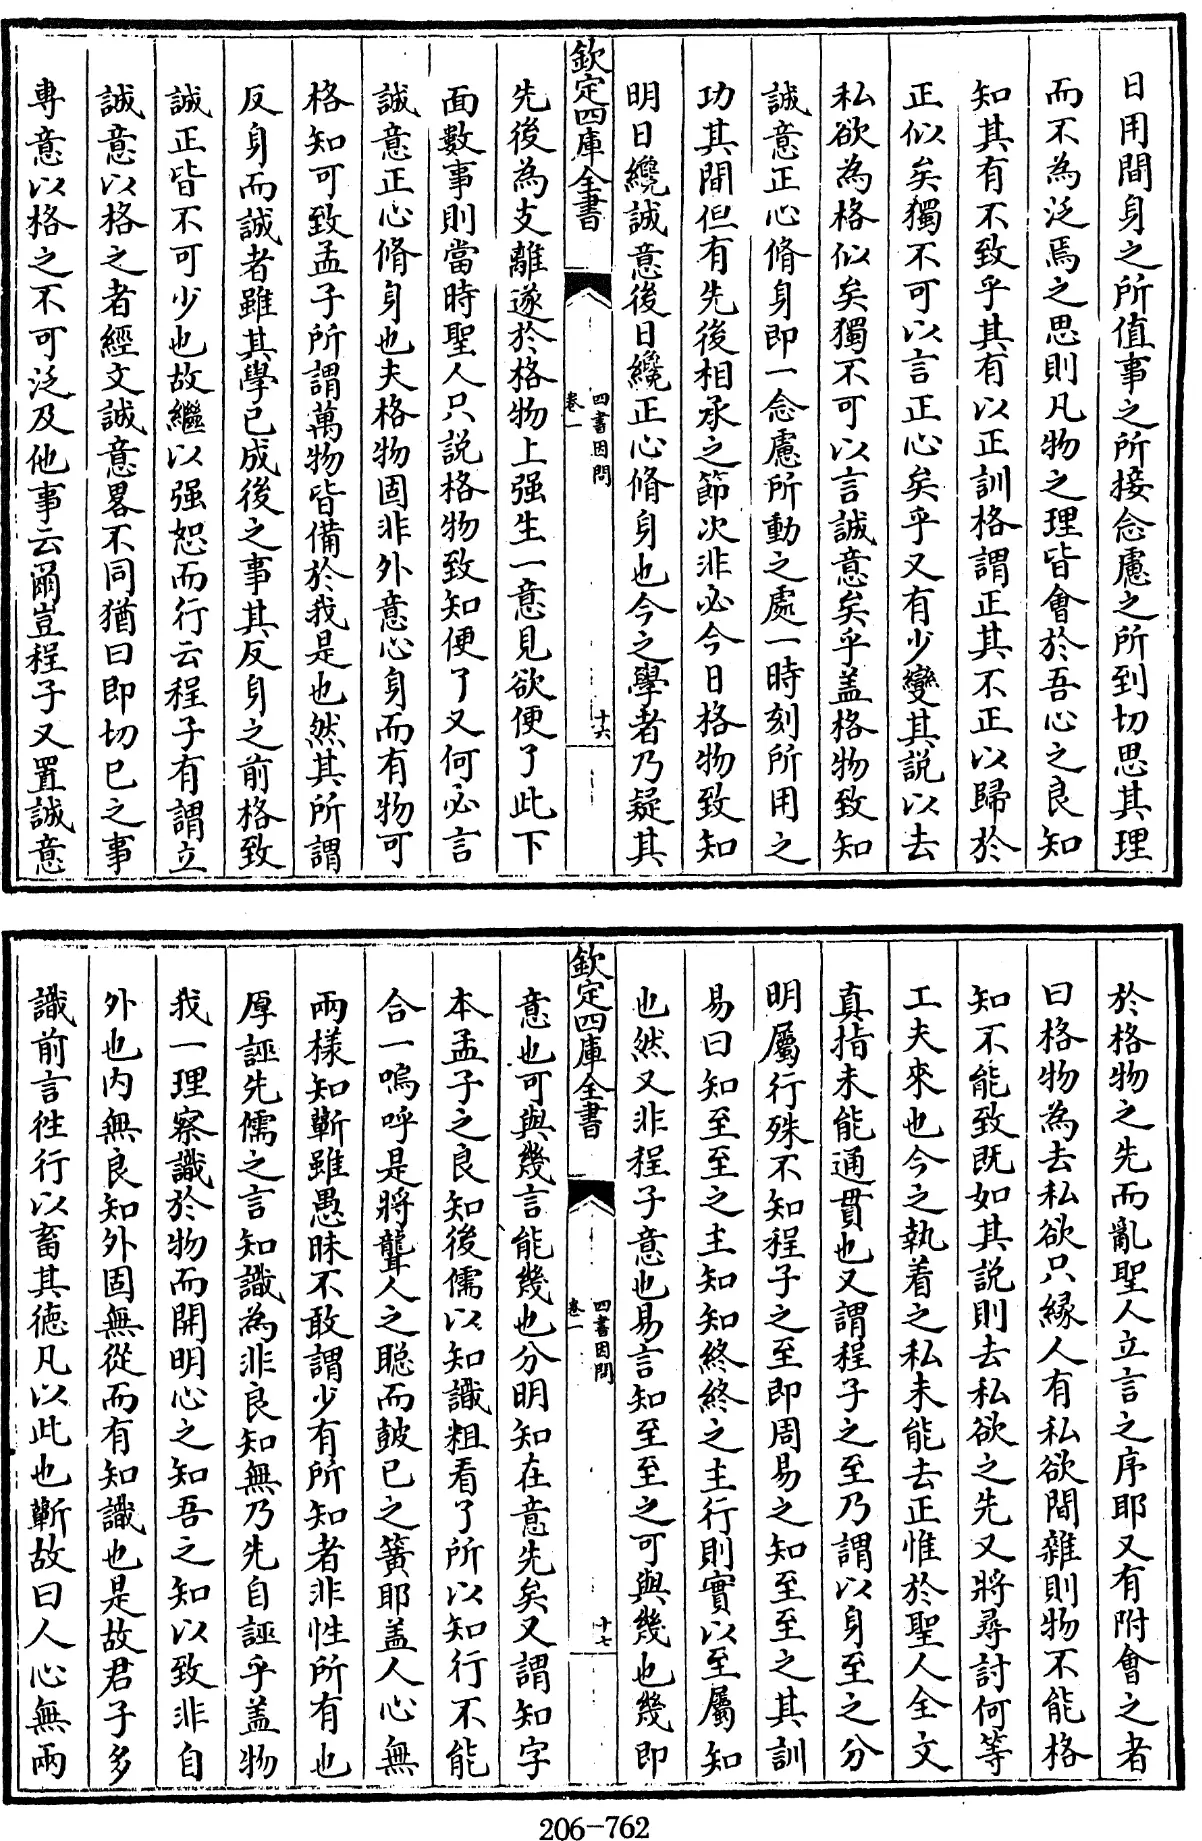 日用間身之所值事之所接念慮之所到切思其理
而不為泛焉之思則凡物之理皆㑹於吾心之良知
知其有不致乎其有以正訓格謂正其不正以歸於
正似矣獨不可以言正心矣乎又有少變其説以去
私欲為格似矣獨不可以言誠意矣乎盖格物致知
誠意正心脩身即一念慮所動之處一時刻所用之
功其間但有先後相承之節次非必今日格物致知
明日纔誠意後日纔正心脩身也今之學者乃疑其
欽定四庫全書
四書因問
卷一
十六
先後為支離遂於格物上强生一意見欲便了此下
面數事則當時聖人只説格物致知便了又何必言
誠意正心脩身也夫格物固非外意心身而有物可
格知可致孟子所謂萬物皆備於我是也然其所謂
反身而誠者雖其學已成後之事其反身之前格致
誠正皆不可少也故繼以强恕而行云程子有謂立
誠意以格之者經文誠意畧不同猶曰即切已之事
專意以格之不可泛及他事云爾豈程子又置誠意
於格物之先而亂聖人立言之序耶又有附㑹之者
曰格物為去私欲只緣人有私欲間雜則物不能格
知不能致既如其説則去私欲之先又將尋討何等
工夫來也今之執着之私未能去正惟於聖人全文
真指未能通貫也又謂程子之至乃謂以身至之分
明屬行殊不知程子之至即周易之知至至之其訓
易曰知至至之主知知終終之主行則實以至屬知
也然又非程子意也易言知至至之可與幾也幾即
欽定四庫全書
四書因問
卷一
十七
意也可與幾言能幾也分明知在意先矣又謂知字
本孟子之良知後儒以知識粗看了所以知行不能
合一嗚呼是將聾人之聰而鼓已之簧耶盖人心無
兩樣知蘄雖愚昧不敢謂少有所知者非性所有也
厚誣先儒之言知識為非良知無乃先自誣乎盖物
我一理察識於物而開明心之知吾之知以致非自
外也内無良知外固無從而有知識也是故君子多
識前言徃行以畜其徳凡以此也蘄故曰人心無兩
206-762